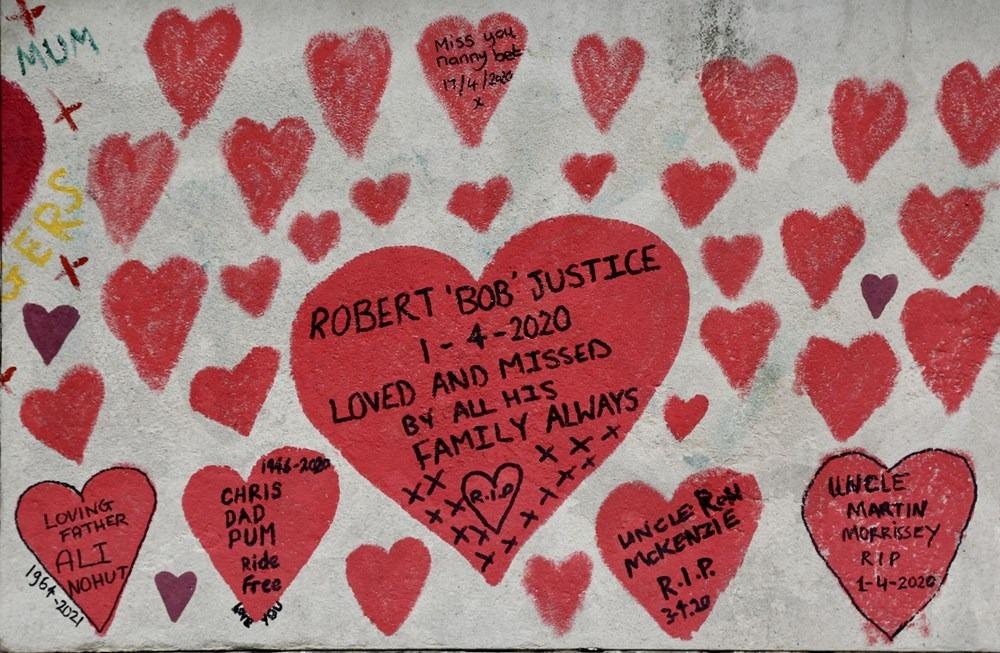 MUM
GERS
Miss you
nanny bet
17/4/2020
x
ROBERT 'BOB' JUSTICE
1-4-2020
LOVED AND MISSED
BY ALL HIS
FAMILY ALWAYS
R.I.P
LOVING
FATHER
ALI
NOHUT
1964-2021
1946-2020
CHRIS
DAD
PUM
Ride
Free
LOVE YOU
UNCLE RON
McKENZIE
R.I.P.
3-4.20
UNCLE
MARTIN
MORRISSEY
RIP
1-4-2020